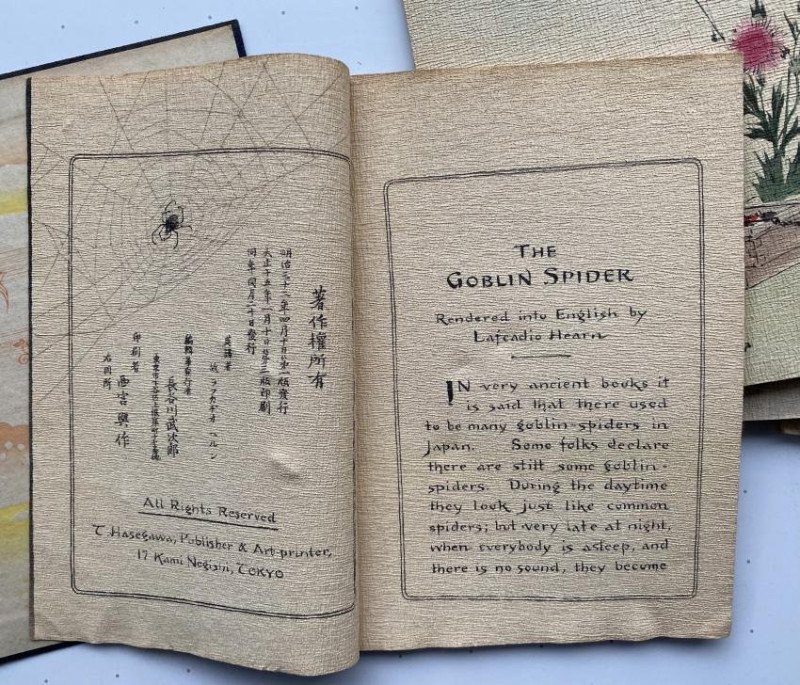 著作權所有
明治三十二年四月十日第一版發行
大正十五年一月十日第三版印刷
同年同月二十日發行
長谷川武次郎
印刷者
西宮與作
右同所
All Rights Reserved
T. Hasegawa, Publisher & Art-printer,
17 Kami Negishi, TOKYO
THE
GOBLIN SPIDER
Rendered into English by
Lafcadio Hearn
IN very ancient books it
is said that there used
to be many goblin-spiders in
Japan. Some folks declare
there are still some goblin-
spiders. During the daytime
they look just like common
spiders; but very late at night,
when everybody is asleep, and
there is no sound, they become